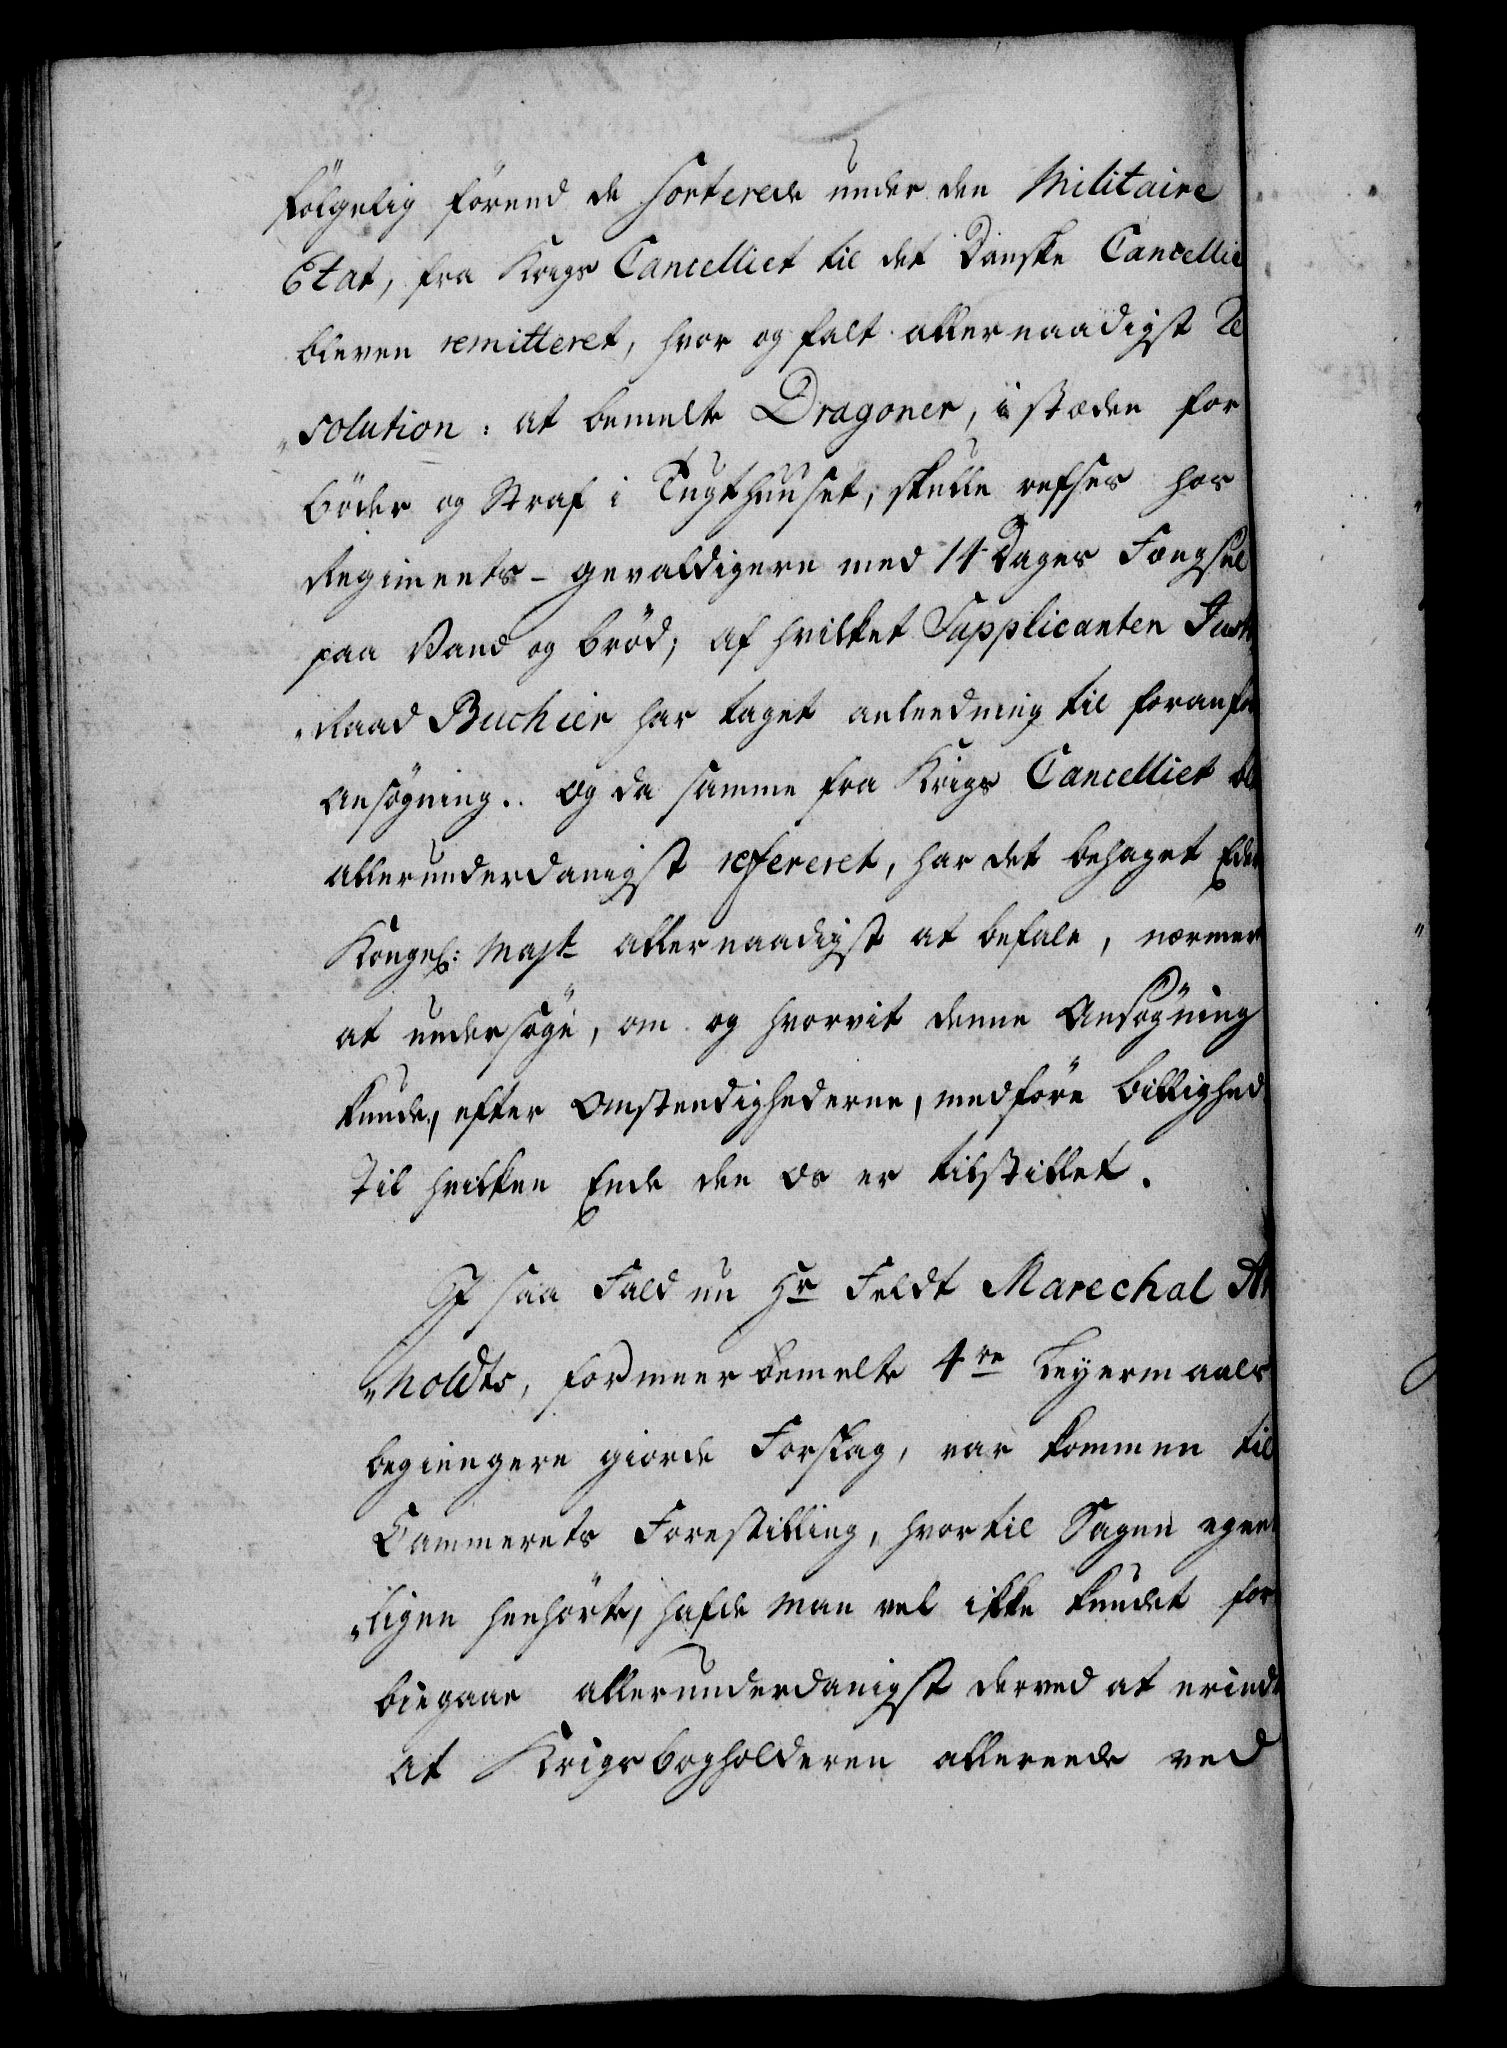 følgelig førend de sorterede under den Militaire
Etat, fra Krigs Cancelliet til det Danske Cancellie
bleven remitteret, hvor og falt allernaadigst Re
„solution: at bemelte Dragoner, i stæden for
Bøder og Straf i Tugthuuset, skulle refses hos
Regiments-gevaldigeren med 14 Dages Fængsel
paa Vand og Brød; af hvilket Supplicanten Justi
„Raad Buchier har taget anleedning til foranfør
Ansøgning.. Og da samme fra Krigs Cancelliet bl
allerunderdanigst refereret, har det behaget Eders
Kongel: Mayt allernaadigst at befale, nærmer
at undersøge, om og hvorvit denne Ansøgning
kunde, efter Omstendighederne, medføre Billighed
Til hvilken Ende den os er tilstillet.
I saa Fald nu Hr Feldt Marechal Ar
„noldts, for meerbemelte 4re Leyermaals
begiengere giorde Forslag, var kommen til
Cammerets Forestilling, hvortil Sagen egent
„ligen henhørte, hafde man vel ikke kundet for
biegaae allerunderdanigst derved at erindr
at Krigsbogholderen allereede ved